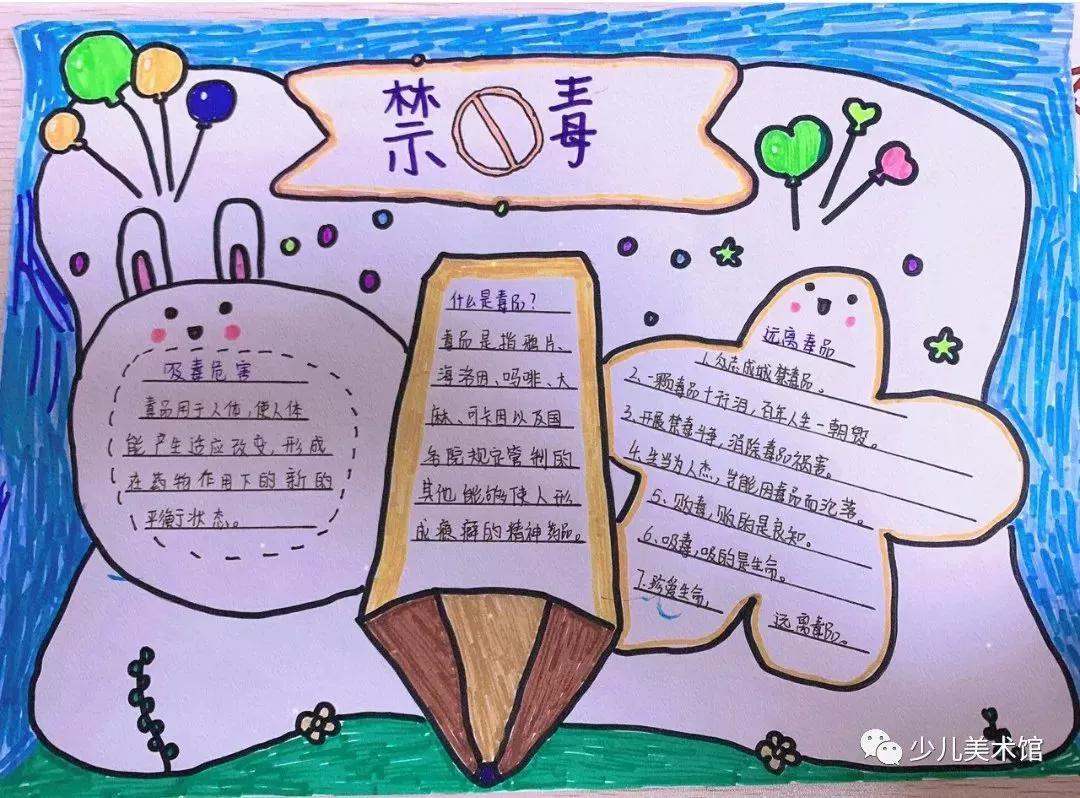 禁毒
吸毒危害
毒品用于人体,使人体
能产生适应改变,形成
在药物作用下的新的
平衡状态。
什么是毒品?
毒品是指鸦片、
海洛因、吗啡、大
麻、可卡因以及国
务院规定管制的
其他能够使人形
成瘾癖的精神药品。
远离毒品
1.众志成城禁毒品。
2.一颗毒品十行泪,百年人生一朝毁。
3.开展禁毒斗争,消除毒品祸害。
4.生当为人杰,岂能因毒品而沦落。
5、贩毒,贩的是良知。
6、吸毒,吸的是生命。
7.珍爱生命,
远离毒品。
少儿美术馆